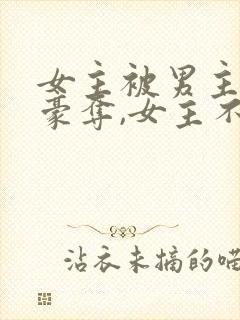 女主被男主
豪夺,女主不
沾衣未摘的喵